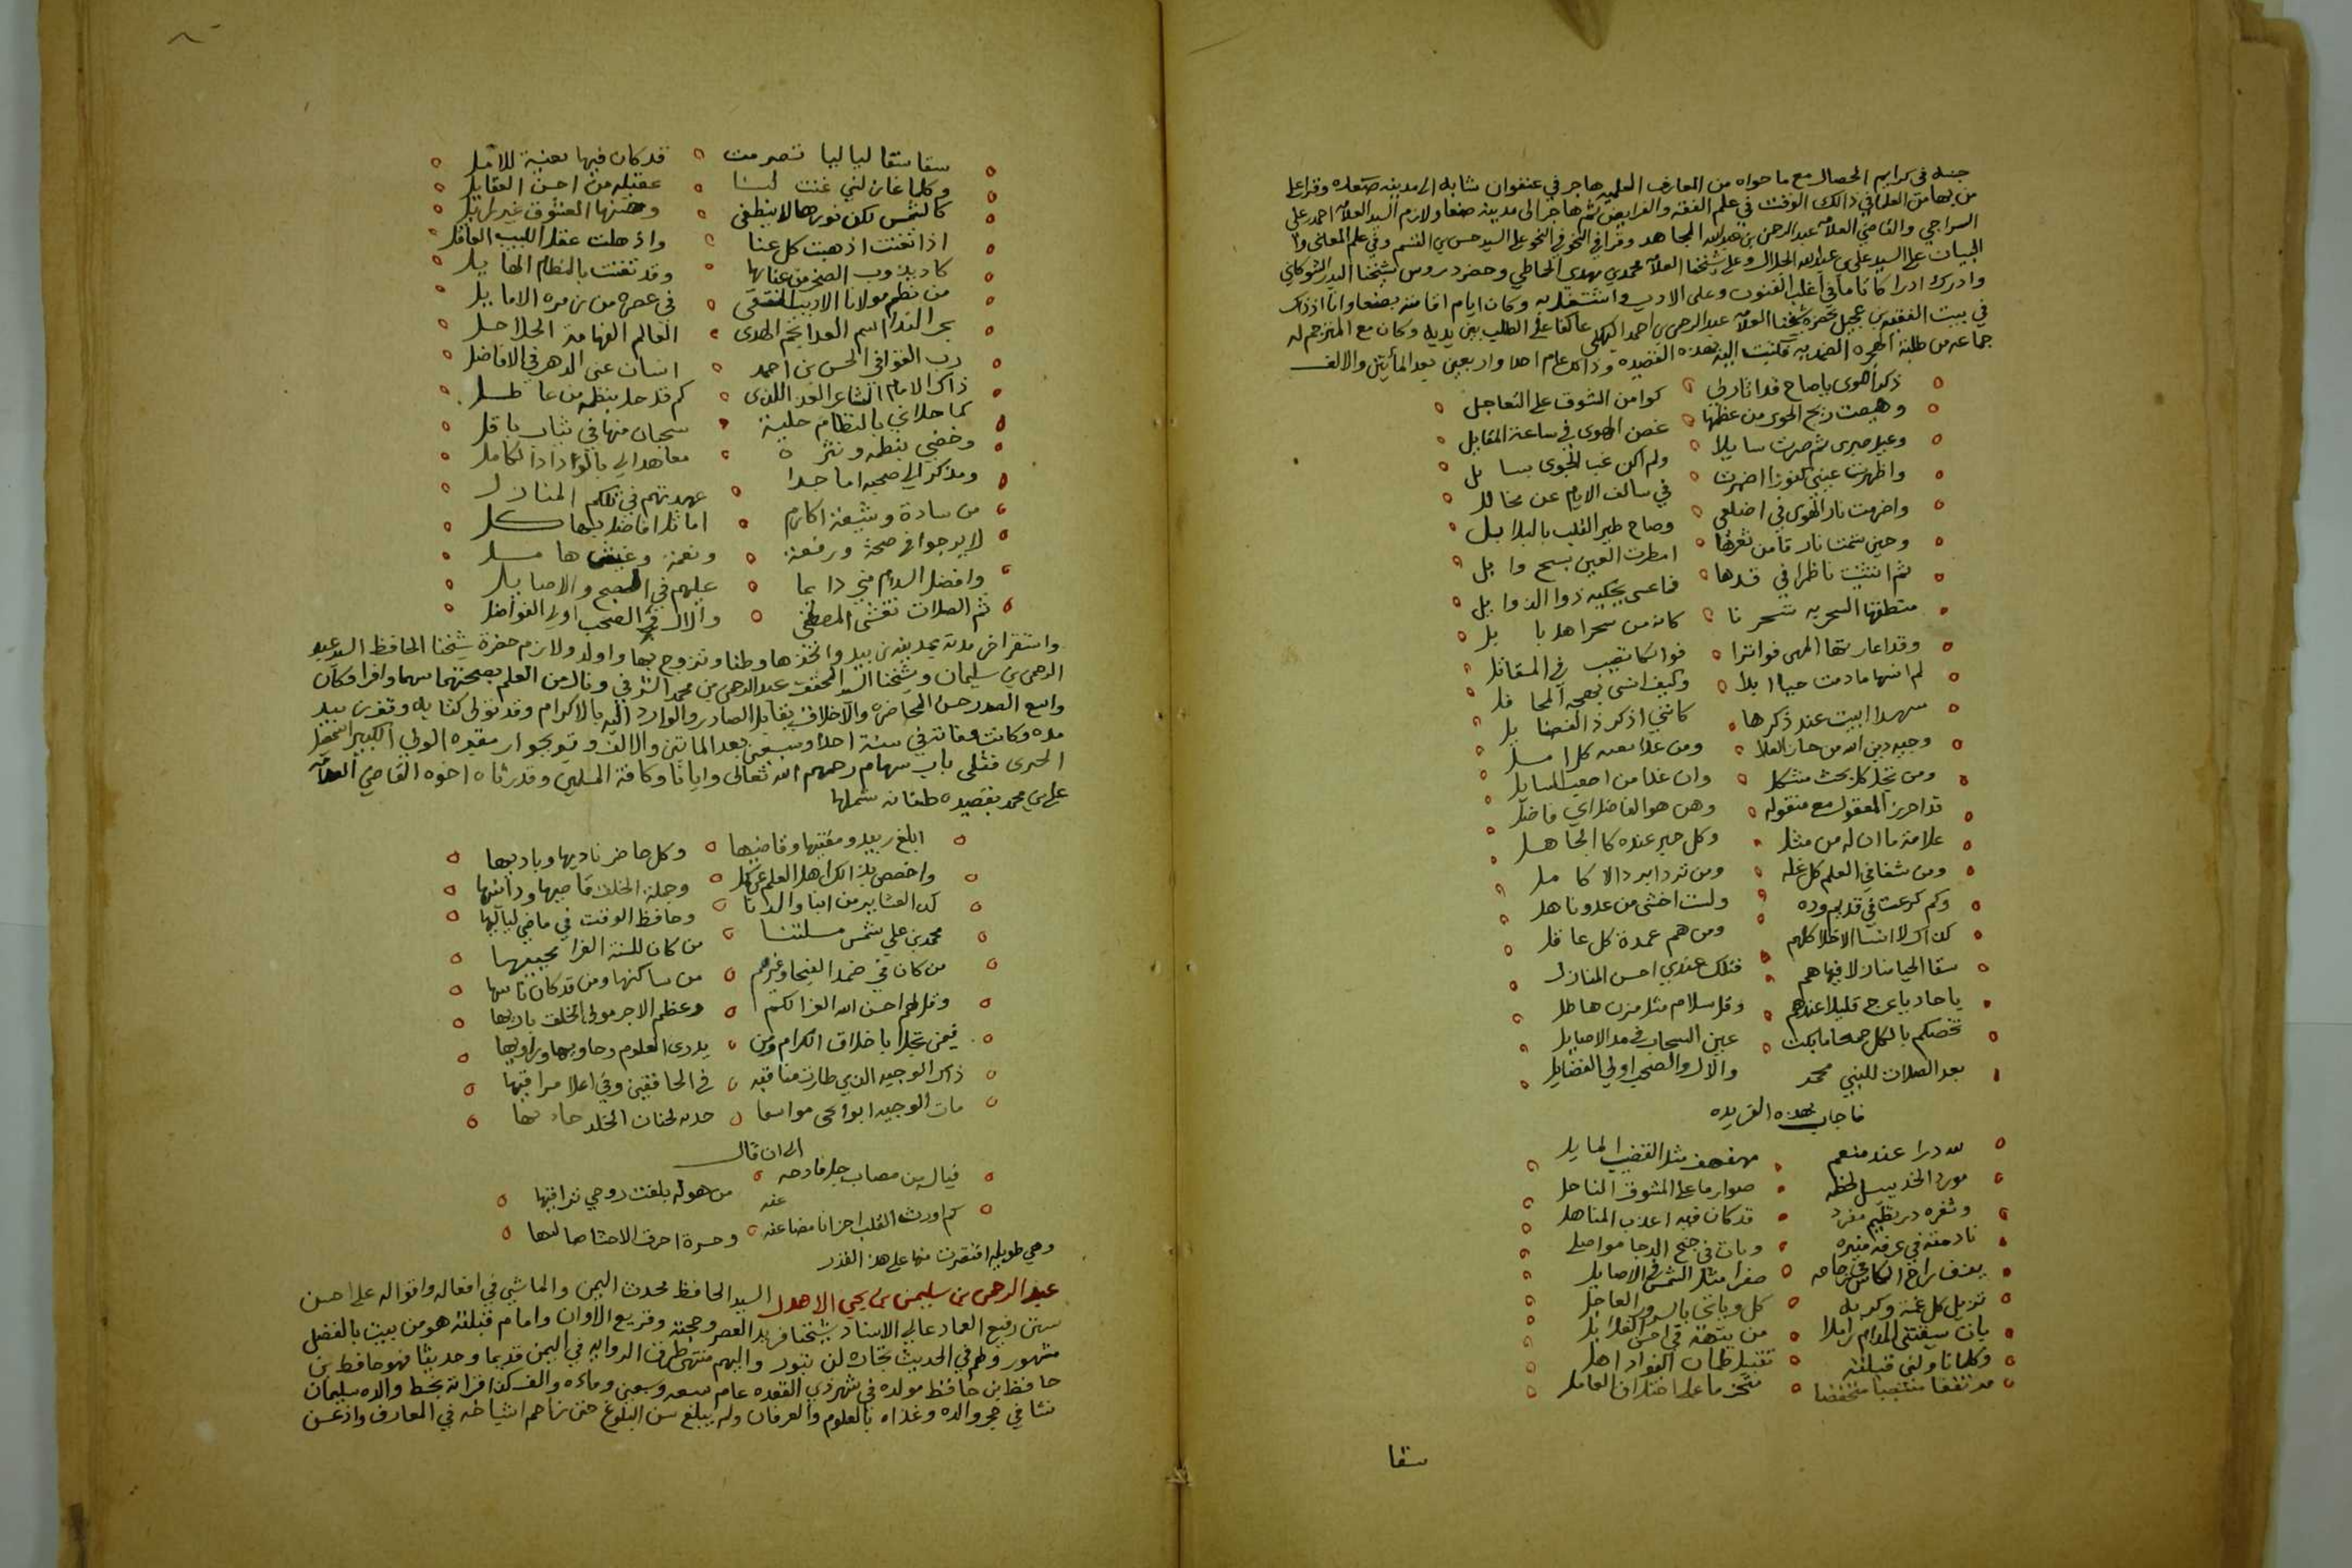 جنه في كرايم الخصال مع ما حواه من المعارف العلميه هاجر في عنفوان شبابه الى مدينه صعده وقرا على
من بها من العلما في ذالك الوقت في علم الفقه والفرايض ثم هاجر الى مدينة صنعا ولازم السيد العلامه احمد بن علي
السراجي والقاضي العلامه عبد الرحمن بن عبد الله المجاهد وقرا في النحو على السيد حسن بن القسم وفي علم المعاني وا
لبيان على السيد علي بن عبد الله الجلال وعلى شيخنا العلامه محمد بن مهدي الحماطي وحضر دروس شيخنا البدر الشوكاني
وادرك ادراكا تاما في اغلب الفنون وعلى الادب واشتغل به وكان ايام اقامته بصنعا وانا اذ ذاك
في بيت الفقيه بن عجيل بحضرة شيخنا العلامه عبد الرحمن بن احمد البهكلي عاكفا على الطلب بين يديه وكان مع المترجم له
جماعه من طلبة الهجره الضمديه فكتبت اليه بهذه القصيده وذالك عام احدا واربعين بعد المأتين والالف
ذكر الهوى ياصاح قد اثار لي كوامن الشوق على التعاجل
وهيجت ريح الجوى من عظمها غصن الهوى في ساعة المقابل
وعيل صبري ثم صرت سايلا ولم اكن غب الجوى بسايل
واظهرت عيني كنوزا اضمرت في سالف الايام عن مخاتل
واضرمت نار الهوى في اضلعي وصاح طير القلب بالبلابل
وحين شمت بارقا من ثغرها امطرت العين بسح وابل
ثم انثنيت ناظرا في قدها فاعسى يحكيه ذوا الذوابل
منطقها السحر به سحرنا كانه من سحر اهل بابل
وقد اعارتها المهى فواترا فواتكا تصيب في المقاتل
لم انسها ما دمت حيا ابدا وكيف انسى بهجه المحافل
سهدا ابيت عند ذكرها كانني اذكر ذا الفضايل
وجيه دين الله من حاز العلا ومن علا بعمه كل امل
ومن يحل كل بحث مشكل وان غدا من اصعب المسايل
قد احرز المعقول مع منقوله وهو الفاضل اي فاضل
علامة ما ان له من مثل وكل حبر عنده كالجاهل
ومن شفا في العلم كل غله ومن تردا برد الاكامل
وكم كرعت في قديم وده ولست اخشى من عدو ناهل
كذاك لا انسا الاخلا كلهم ومن هم عمدة كل عاقل
سقا الحيا منازلا فيها هم فتلك عندي احسن المنازل
يا حاديا عرج قليلا عندهم وقل سلام مثل مزن هاطل
تخصكم بالكل جمعا ما بكت عين السحاب في مدا الاصايل
بعد الصلات للنبي محمد والآل والصحب اولي الفضايل
فاجاب بهذه الفريده
لله درا عند منعم مهفهف مثل القضيب المايل
مورد الخد يسل لحظه صوارما على المشوق الناحل
وثغره در نظيم مفرد قد كان فيه اعذب المناهل
نادمته في غرفه منيره وبات في جنح الدجا مواصلي
يمزج راح الكاس في زجاجه صفرا مثل الشمس في الاصايل
تزيل كل غمة وكربه كل وياتي بالسرور العاجل
بات يسقيني المدام
وكلما ناولني قبلته تقبيل ظمآن الفواد اهل
سقا
سقا سقا لياليا تصرمت قد كان فيها بغية للامل
وكلما غازلني غنت لنا عقيله من احسن العقايل
كالشمس لكن نورها لا ينطفي وحسنها المعشوق غير زايل
اذا تغنت اذهبت كل عنا واذهلت عقل اللبيب العاقل
كاد يذوب الصخر من غنايها وقد تغنت بالنظام الهايل
من نظم مولانا الاديب المنتقى في عصره من زمرة الاماثل
بحر الندا رسم العدا نجم الهدى العالم الفهامة الحلاحل
رب القوافي الحسن بن احمد انسان عين الدهر في الافاضل
ذاك الامام الشاعر الفرد اللذي كم قد حلا بنظمه من عاطل
كما حلاني بالنظام حلية سحبان منها في ثياب باقل
وخصني بنظمه ونثره معاهدا لي بالوداد الكامل
ومذكرا لي صحبه اماجدا عهدتهم في تلكم المنازل
من سادة وشيعة اكارم اماثل افاضل بهاكل
لا برحوا في صحة ورفعة ونعمة وغيث هامل
وافضل السلام مني دايما عليهم في الصبح والاصايل
ثم الصلات تغشى المصطفى والال والصحب اولي الفواضل
واستقر اخر مدته بمدينة زبيد واتخذها وطنا وتزوج بها واولد ولازم حضرة شيخنا الحافظ السيد عبد
الرحمن بن سليمان وشيخنا السيد المحقق عبد الرحمن بن محمد الشرفي ونال من العلم بصحبتهما سهما وافرا وكان
واسع الصدر حسن المحاضره والاخلاق يقابل الصادر والوارد اليه بالاكرام وقد تولى كتابه وقف زبيد
مده وكانت وفاته في سنة احدا وسبعين بعد المايتين والالف وقبر بجوار مقبره الولي الكبير اسمعيل
الجبرتي قبلي باب سهام رحمهم الله تعالى وايانا وكافة المسلمين وقد رثاه اخوه القاضي العلامه
علي بن محمد بقصيده طنانه شملها
ابلغ زبيد ومفتيها وقاضيها وكل حاضر ناديها وباديها
واخصص بذالك اهل العلم عن كمل وجملة الخلق قاصيها ودانيها
كذا العشاير من ابنا والدنا وحافظ الوقت في ماضي لياليها
محمد بن علي شمس ملتنا من كان للسنة الغرا محييها
من كان في ضمد الفيحا وغيرهم من ساكنها ومن قد كان ثانيها
وقل لهم احسن الله العزا لكم وعظم الاجر مولى الخلق باريها
فيمن تحلا باخلاق الكرام ومن يدري العلوم وحاويها وراويها
ذاك الوجيه الذي طارت مناقبه في الخافقين وفي اعلا مراقيها
مات الوجيه ابو يحيى
الى ان قال
فيال من مصاب جل فادحه من هوله بلغت روحي تراقيها
كم اورث القلب احزانا مضاعفه وحسرة احرق الاحشا صاليها
وهي طويله اقتصرت منها على هذا القدر
عبد الرحمن بن سليمن بن يحيى الاهدل السيد الحافظ محدث اليمن والماشي في افعاله واقواله على احسن
سنن رفيع العماد عالي الاسناد شيخنا فريد العصر وحجته وقريع الاوان وامام قبلته هو من بيت بالفضل
مشهور ولهم في الحديث تجارة لن تبور واليهم منتهى طرف الروايه في اليمن قديما وحديثا فهو حافظ بن
حافظ بن حافظ مولده في شهر ذي القعده عام تسعه وسبعين ومائه والف كذا قراته بخط والده سليمان
نشا في حجر والده وغذاه بالعلوم والعرفان ولم يبلغ سن البلوغ حتى زاحم اشياخه في المعارف واذعن